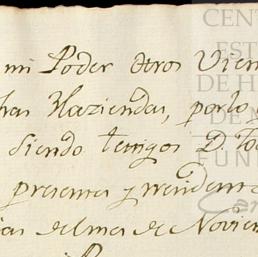 mi Poder otros Vien
has Haziendas, por lo
siendo testigos D. Jo
presentes y
ias del mes de Noviem
CEN
EST
DE H
DE M
FUN